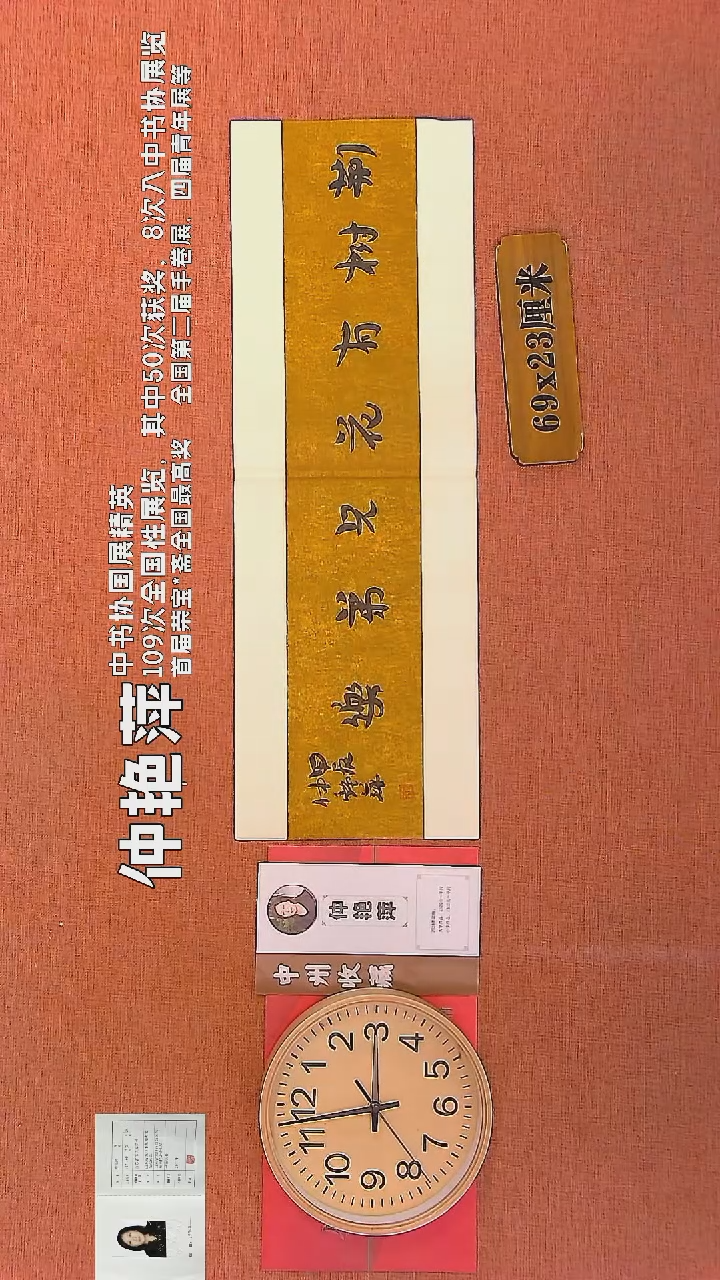 仲艳萍
中书协国展精英
109次全国性展览，其中50次获奖，8次入中书协展览
首届荣宝*斋全国最高奖 全国第二届手卷展，四届青年展等
荆树有花兄弟樂
69x23厘米
仲艳萍
中州收藏
12
1
2
3
4
5
6
7
8
9
10
11